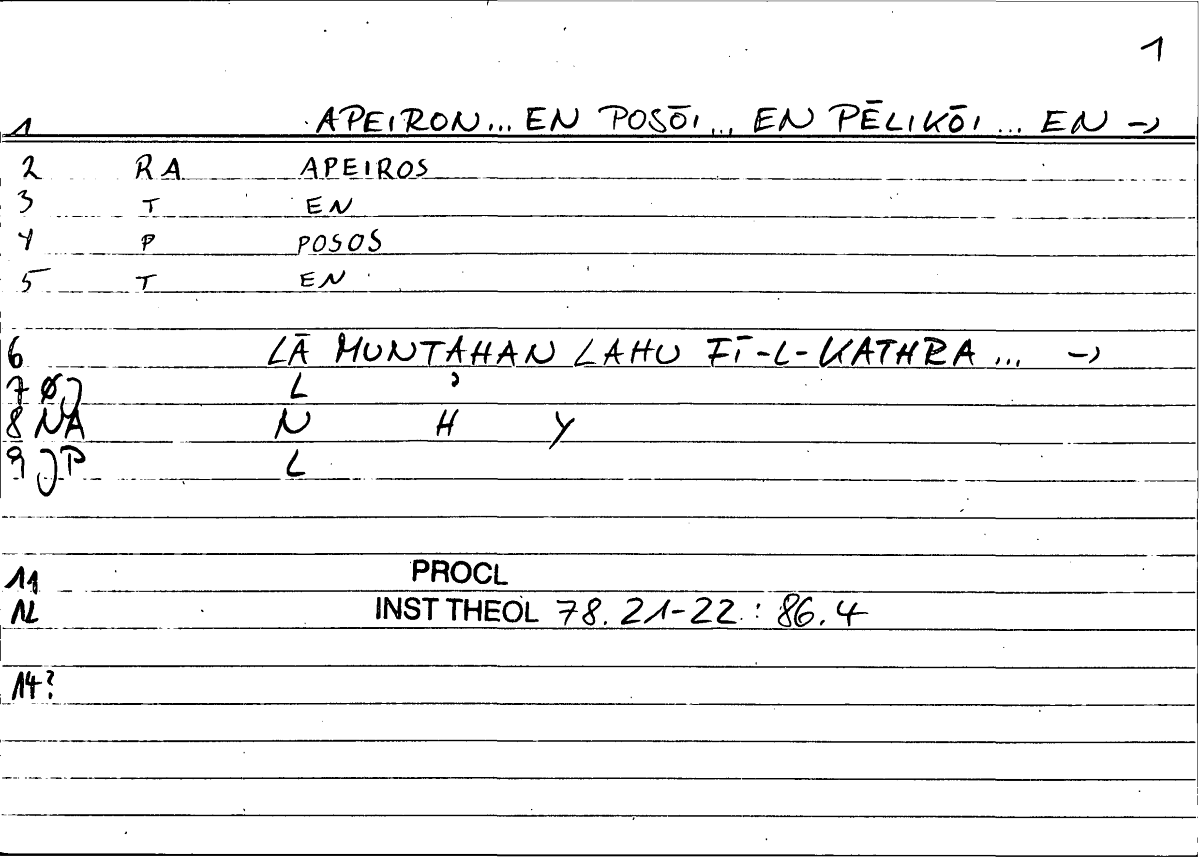 1
1 APEIRON... EN POSŌI... EN PĒLIKŌI... EN →
2 RA APEIROS
3 T EN
4 P POSOS
5 T EN
6 LĀ MUNTAHAN LAHU FĪ-L-KATHRA ... →
7 ØJ L ʾ
8 NA N H Y
9 JP L
11 PROCL
12 INST THEOL 78. 21-22 : 86.4
14?